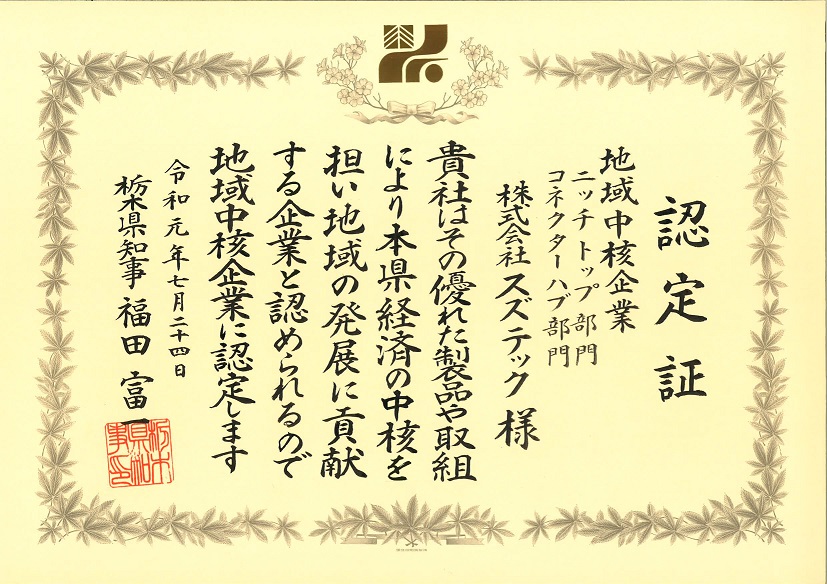 認定証
地域中核企業
ニッチトップ部門
コネクターハブ部門
株式会社スズテック 様
貴社はその優れた製品や取組
により本県経済の中核を
担い地域の発展に貢献
する企業と認められるので
地域中核企業に認定します
令和元年七月二十四日
栃木県知事 福田富一